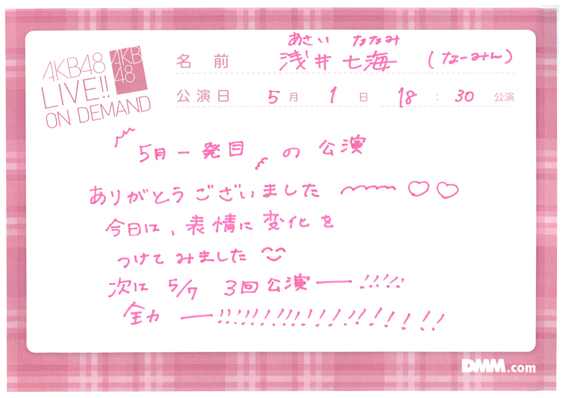 AKB48
LIVE!!
ON DEMAND
AKB
48
あさい ななみ
名前 浅井七海 (なーみん)
公演日 5月 1日 18:30 公演
5月一発目の公演
ありがとうございました 〜〜〜 ♡♡
今日は、表情に変化を
つけてみました
次は 5/7 3回公演ー!!!!!
全力 ー!!!!!!!!!!!!!!!!
DMM.com